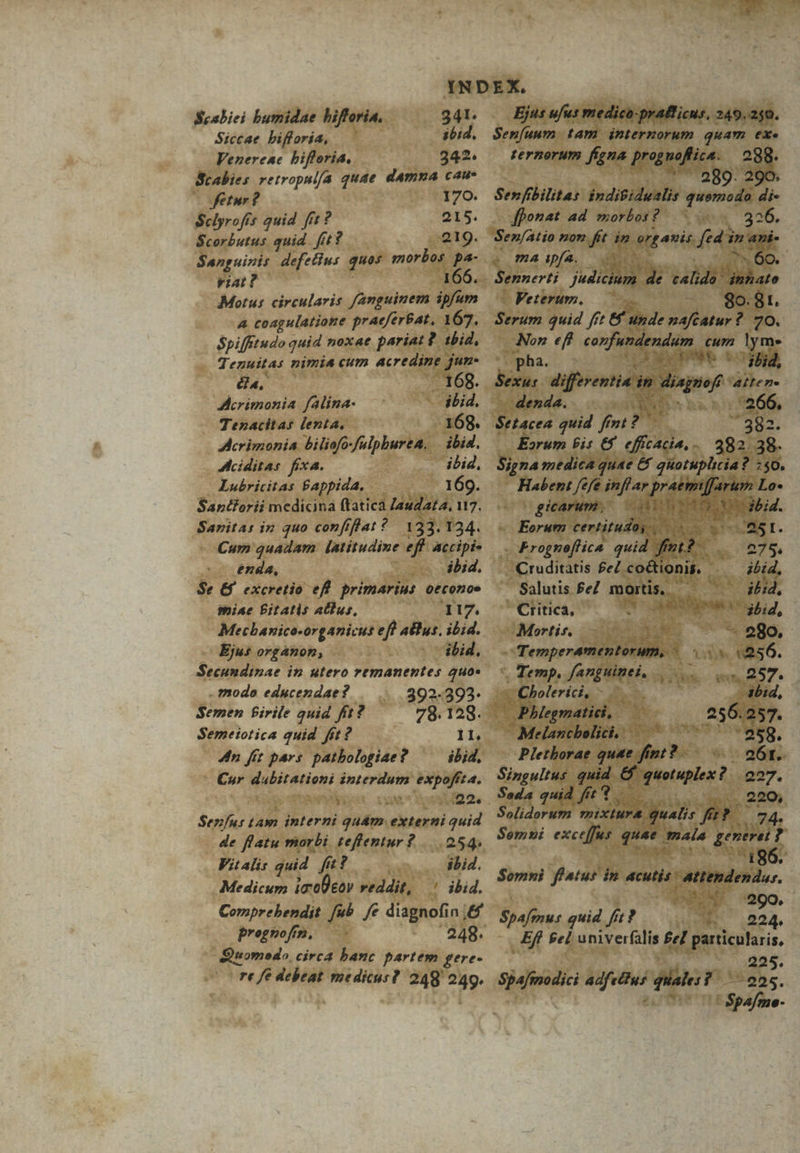 INDEX.
Scabiei humidae hiſtoria. 341.
Siccae hiſtoria, ibid.
Venereae hiſtoria. 342.
Scabies retropulſa quae damna cau-
ſetur? 170.
Sclyroſis quid ſit? 215.
Scorbutus quid ſit? 219.
Sanguinis defectus quos morbos pa-
riat? 166.
Motus circularis ſanguinem ipſum
a coagulatione praeſervat. 167.
Spiſſitudo quid noxae pariat? ibid.
Tenuitas nimia cum acredine jun-
cta. 168.
Acrimonia ſalina. ibid.
Tenacitas lenta. 168.
Acrimonia bilioſo-ſulphurea. ibid.
Aciditas fixa. ibid.
Lubricitas vappida. 169.
Sanctorii medicina ſtatica laudata. 117.
Sanitas in quo conſiſtat? 133. 134.
Cum quadam latitudine eſt accipi-
enda. ibid.
Se & excretio eſt primarius oecono-
miae vitatis actus. 117.
Mechanico-organicus eſt actus. ibid.
Ejus organon, ibid.
Secundinae in utero remanentes quo-
modo educendae? 392. 393.
Semen virile quid ſit? 78. 128.
Semeiotica quid ſit? 11.
An ſit pars pathologiae? ibid.
Cur dubitationi interdum expoſita.
22.
Senſus tam interni quam externi quid
de ſtatu morbi teſtentur? 254.
Vitalis quid ſit? ibid.
Medicum ἰσόθεον reddit. ibid.
Comprehendit ſub ſe diagnoſin &
prognoſin. 248.
Quomodo circa hanc partem gere-
re ſe debeat medicus? 248 249.
Ejus uſus medico-practicus. 249. 250.
Senſuum tam internorum quam ex-
ternorum ſigna prognoſtica. 288.
289. 290.
Senſibilitas individualis quomodo di-
ſponat ad morbos? 326.
Senſatio non fit in organis ſed in ani-
ma ipſa. 60.
Sennerti judicium de calido innato
Veterum. 80. 81.
Serum quid ſit & unde naſcatur? 70.
Non eſt confundendum cum lym-
pha. ibid.
Sexus differentia in diagnoſi atten-
denda. 266.
Setacea quid ſint? 382.
Eorum vis & efficacia. 382 38.
Signa medica quae & quotuplicia? 250.
Habent ſeſe inſtar praemiſſarum Lo-
gicarum. ibid.
Eorum certitudo, 251.
Prognoſtica quid ſint? 275.
Cruditatis vel coctionis. ibid.
Salutis vel mortis. ibid.
Critica. ibid.
Mortis. 280.
Temperamentorum. 256.
Temp. ſanguinei. 257.
Cholerici. ibid.
Phlegmatici. 256. 257.
Melancholici. 258.
Plethorae quae ſint? 261.
Singultus quid & quotuplex? 227.
Soda quid ſit? 220.
Solidorum mixtura qualis ſit? 74.
Somni exceſſus quae mala generet?
186.
Somni ſtatus in acutis attendendus.
290.
Spaſmus quid ſit? 224.
Eſt vel univerſalis vel particularis.
225.
Spaſmodici adfectus quales? 225.
Spaſmo-